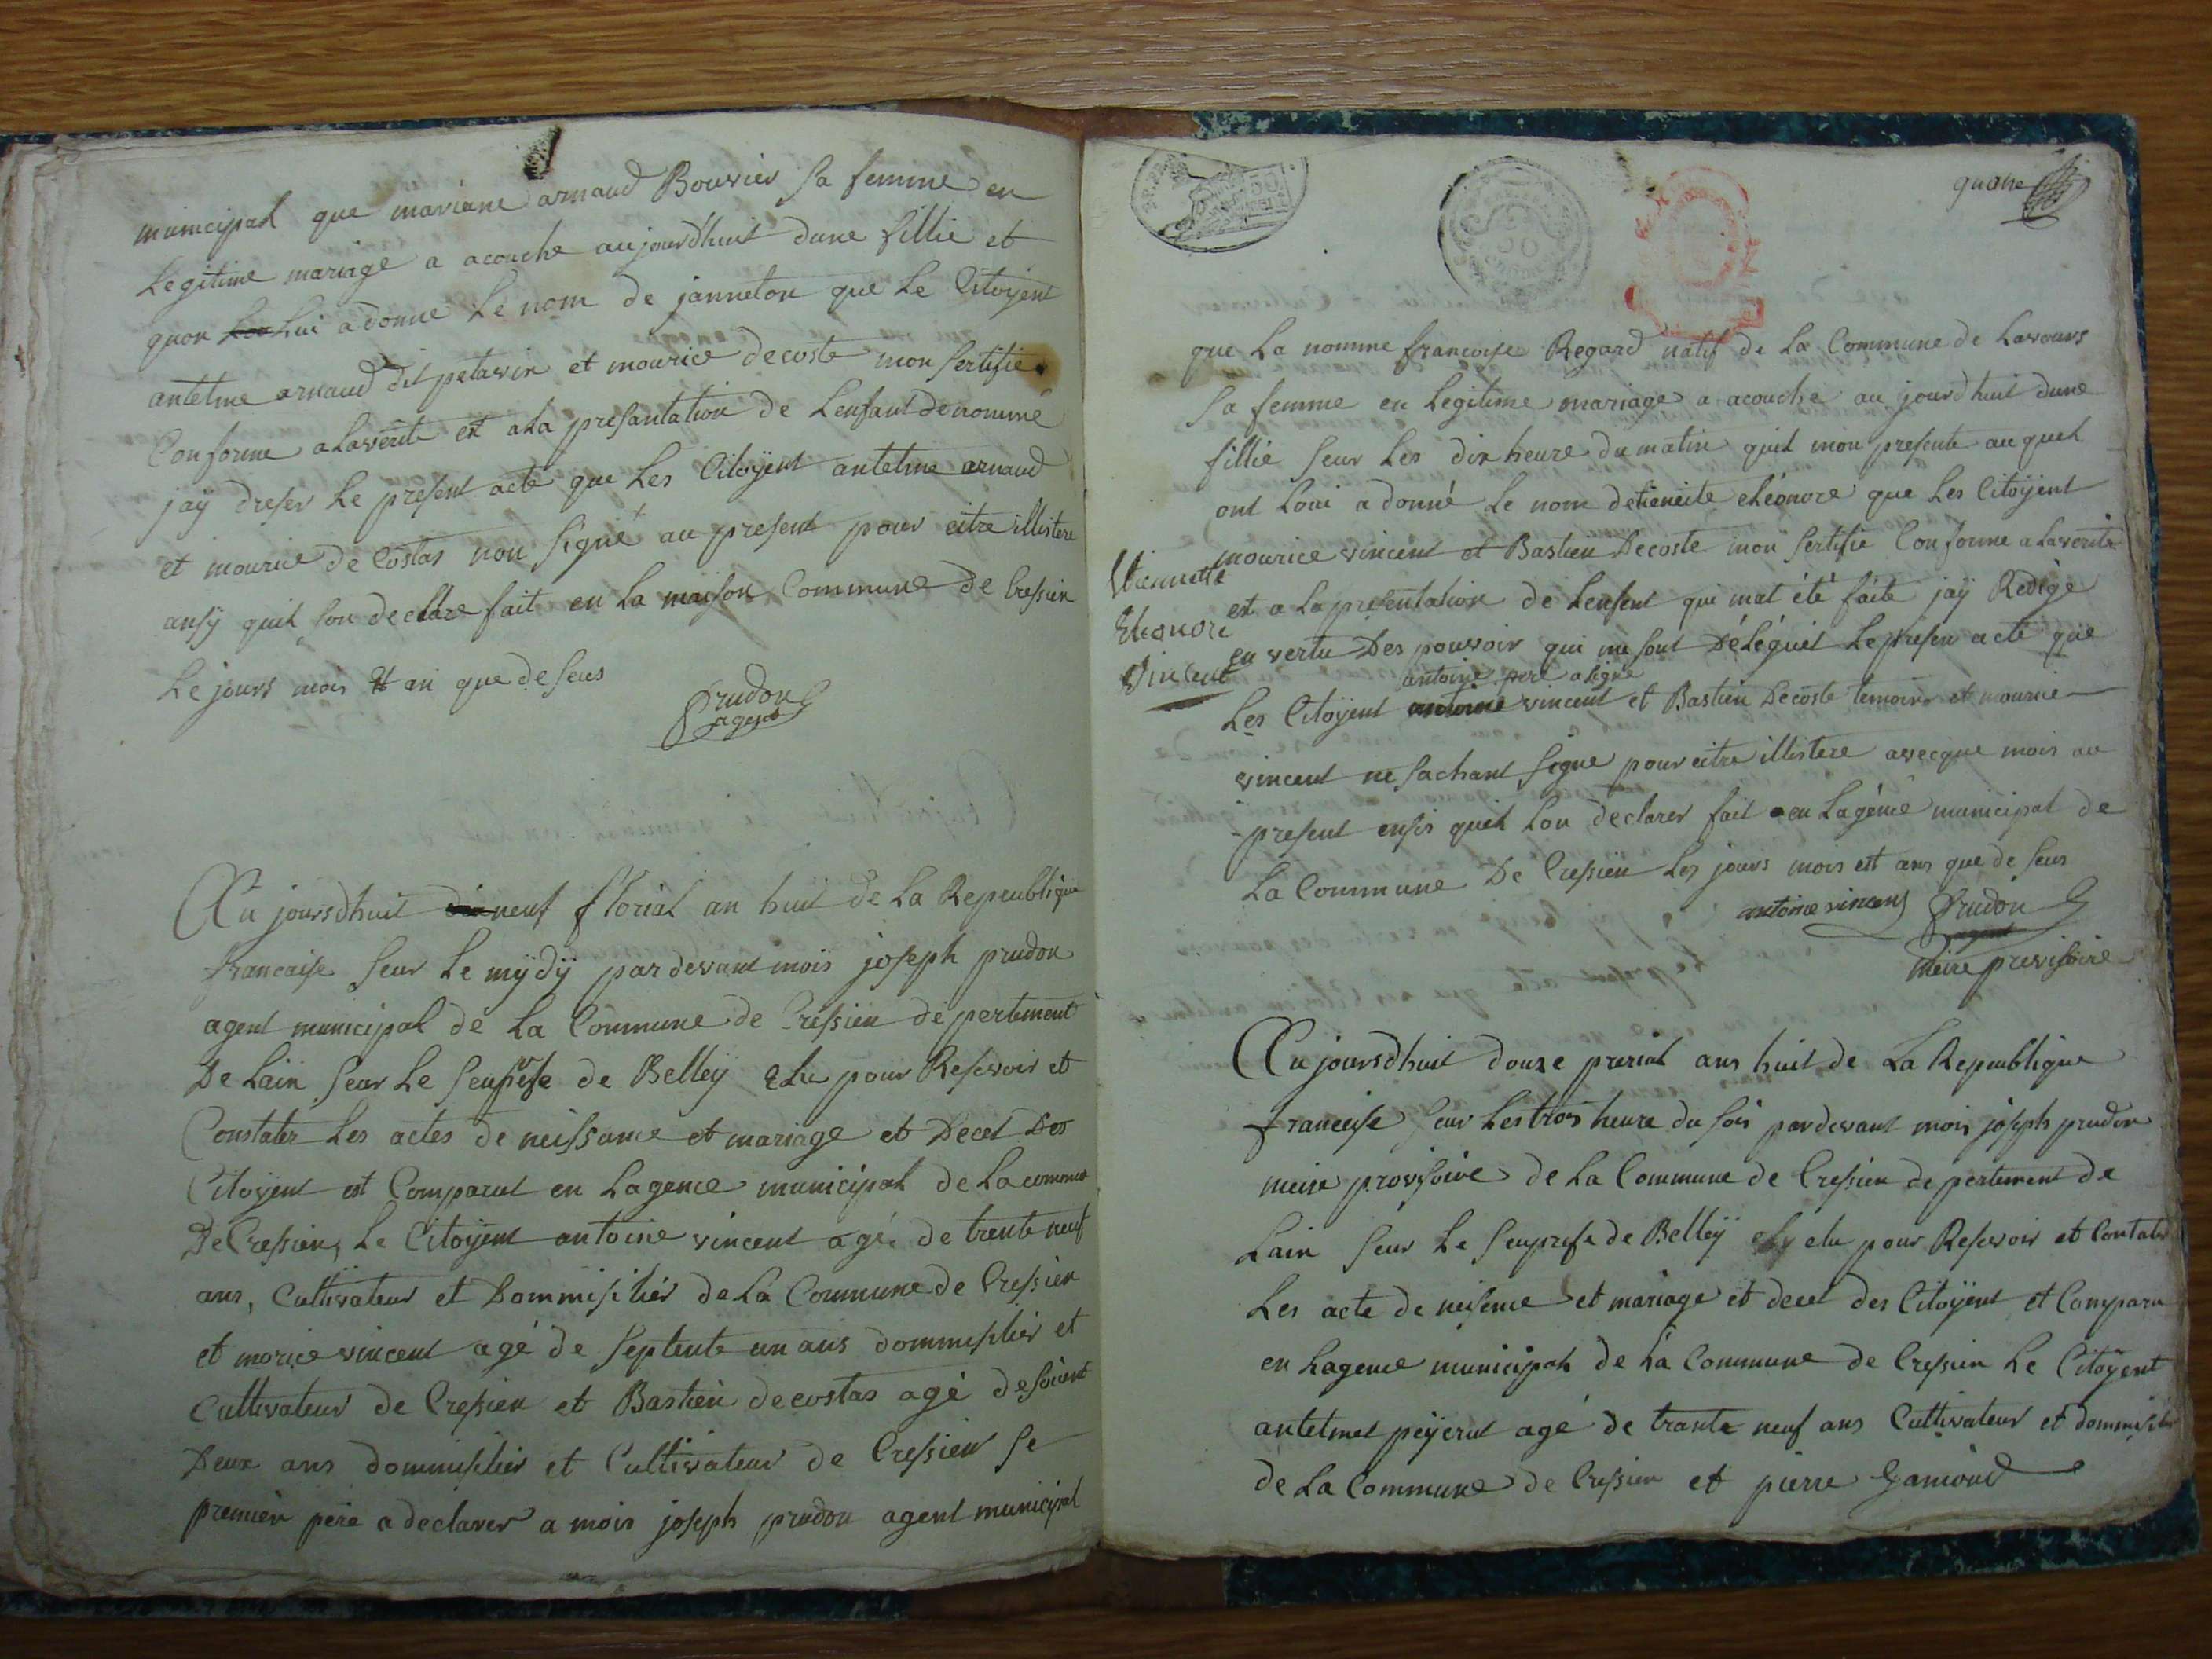 municipal que mariane arnaud Bouvier sa femme en
Legitime mariage a acouche aujourdhuit dune fillie et
quon Lui a donne Le nom de janneton que Le Citoyent
antelme arnaud dit petavin et mourice decoste mon sertifie
Conforme a Laverite et a La presantation de Lenfant denommé
jaÿ dreser Le present acte que Les Citoÿent antelme arnaud
et mourice de Costas non signé au present pour eitre illistere
ansÿ quil lon declare fait en La maison Commune de Cressieu
Le jours mois et an que deseus
Prudon
agent
Au joursdhuit neuf florial an huit de La Repeublique
francaise seur Le mÿdÿ par devant mois joseph prudon
agent municipal de La Commune de Cressieu depertement
De Lain seur Le seuprefe de Belleÿ Elu pour Resevoir et
Constater Les actes de neissance et mariage et Decet Des
Citoÿent et Comparut en Lagence municipal de La commune
De Cressieu, Le Citoÿent antoine vincent agé de trente neuf
ans, Cultivateur et Dommisilier de La Commune de Cressieu
et morice vincent agé de septente un ans dommisilier et
Cultivateur de Cressieu et Bastien decostas agé de soisent
Deux ans dommisilier et Cultivateur de Cressieu Se
premier pere a declarer a mois joseph prudon agent municipal
que La nomme francoise Regard natif de La Commune de Lavours
sa femme en Legitime mariage a acouche au jourdhuit dune
fillie seur Les dix heure du matin quil mon presente au quel
ont Loui a donné Le nom detieneite eléonore que Les Citoÿent
mourice vincent et Bastien Decoste mon sertifie Conforme a Laverite
et a La presentation de Lensent qui mat été faite jaÿ Redige
en vertu Des pouvoir qui me sont Déléguet Le presen acte que
antoine pere a signe
Les Citoÿent vincent et Bastien Decoste temoin et mourice
vincent ne sachant signe pour eitre illistere avecque mois au
present ensis quil lon declarer fait en Lagence municipal de
La Commune De Cressieu Les jours mois et ans que de seus
antoine vincent Prudon
agent
meire previsoire
Etiennette
Eleonore
Vincent
Au joursdhuit douze prerial ans huit de La Republique
franceise seur Les trois heure du sois par devant mois joseph prudon
meire provisoire de La Commune de Cressieu depertement de
Lain seur Le seuprefe de Belleÿ elu pour Resevoir et Contater
Les acte de neisence et mariage et decet des Citoÿent et Comparu
en Lagence municipal de La Commune de Cressieu Le Citoÿent
antelmet peÿerut agé de trante neuf ans Cultivateur et dommisilier
de La Commune de Cressieu et pierre Gamoud